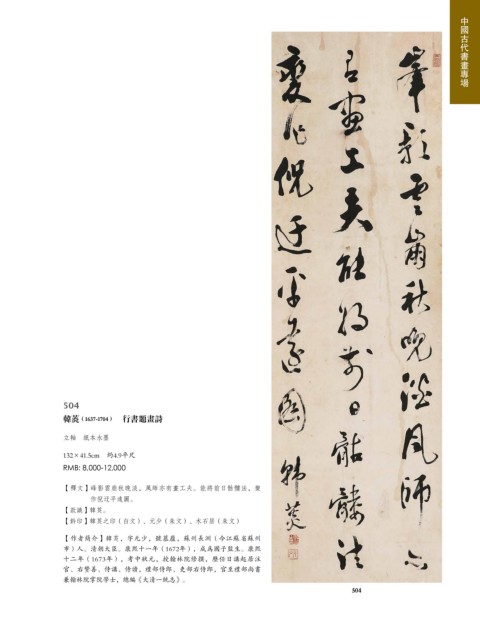 中國古代書畫專場
峯影雲崩秋晚淡風師亦
有畫工夫能將前日骷髏法
變作倪迂平遠圖 韓菼
504
韓菼(1637-1704) 行書題畫詩
立軸 紙本水墨
132×41.5cm 約4.9平尺
RMB: 8,000-12,000
【釋文】峰影雲崩秋晚淡,風師亦有畫工夫。能將前日骷髏法,變
作倪迂平遠圖。
【款識】韓菼。
【鈐印】韓菼之印(白文)、元少(朱文)、木石居(朱文)
【作者簡介】韓菼,字元少,號慕廬,蘇州長洲(今江蘇省蘇州
市)人。清朝大臣。康熙十一年(1672年),成為國子監生。康熙
十二年(1673年),考中狀元,授翰林院修撰,歷任日講起居注
官、右贊善、侍講、侍讀,禮部侍郎、吏部右侍郎,官至禮部尚書
兼翰林院掌院學士,總編《大清一統志》。
504